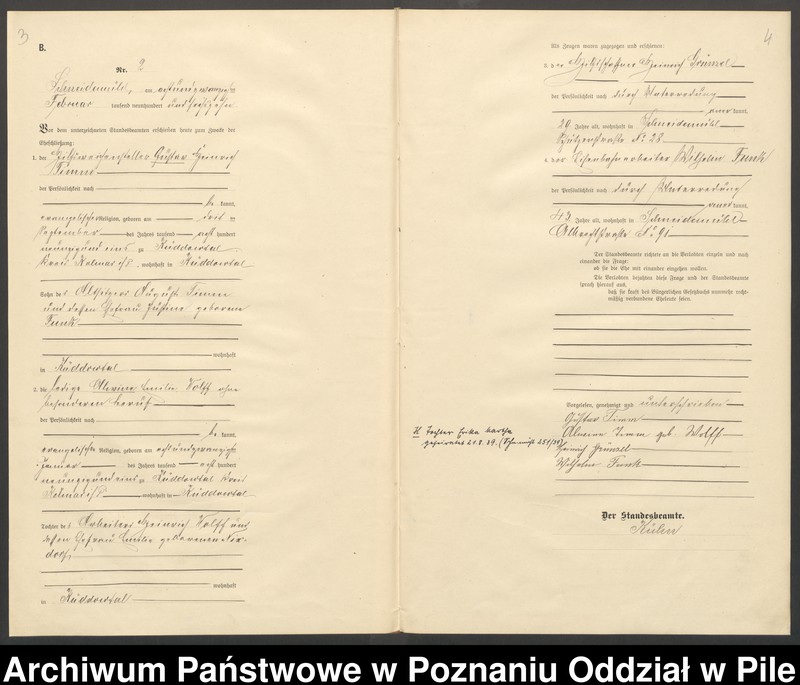 3
B.
Nr. 2
Schneidemühl, am achtundzwanzigsten
Februar tausend neunhundert und sechszehn
Vor dem unterzeichneten Standesbeamten erschienen heute zum Zwecke der
Eheschließung:
1. der Gustav Heinrich
Timm
der Persönlichkeit nach
be kannt,
evangelischer Religion, geboren am
September des Jahres tausend acht hundert
neunzig und eins zu Küddowtal
Kreis Kolmar i/P., wohnhaft in Küddowtal
Sohn des Altsitzers August Timm
und dessen Ehefrau Justine geborene
Funk
wohnhaft
in Küddowtal
2. die ledige Alwine Emilie Wolff ohne
besonderen Beruf
der Persönlichkeit nach
be kannt,
evangelischer Religion, geboren am achtundzwanzigsten
Januar des Jahres tausend acht hundert
neunzig und eins zu Küddowtal Kreis
Kolmar i/P. wohnhaft in Küddowtal
Tochter des Arbeiters Heinrich Wolff und
dessen Ehefrau Emilie geborenen
wohnhaft
in Küddowtal
4
Als Zeugen waren zugezogen und erschienen:
3. der Heinrich
der Persönlichkeit nach durch Unterredung
aner kannt,
29 Jahre alt, wohnhaft in Schneidemühl
No 28
4. der Eisenbahnarbeiter Wilhelm Funk
der Persönlichkeit nach durch Unterredung
aner kannt,
42 Jahre alt, wohnhaft in Schneidemühl
Albrechtstraße No 91
Der Standesbeamte richtete an die Verlobten einzeln und nach
einander die Frage:
ob sie die Ehe mit einander eingehen wollen.
Die Verlobten bejahten diese Frage und der Standesbeamte
sprach hierauf aus,
daß sie kraft des Bürgerlichen Gesetzbuchs nunmehr recht-
mäßig verbundene Eheleute seien.
Vorgelesen, genehmigt und unterschrieben
Gustav Timm
Alwine Timm geb. Wolff
Heinrich
Wilhelm Funk
Tochter Erika Martha
geheiratet 21.8.39.
Der Standesbeamte.
Archiwum Państwowe w Poznaniu Oddział w Pile